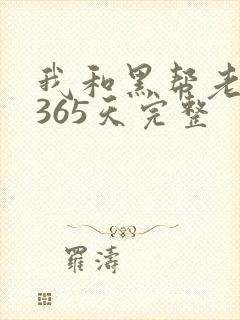 我和黑帮老
365天完整
羅濤